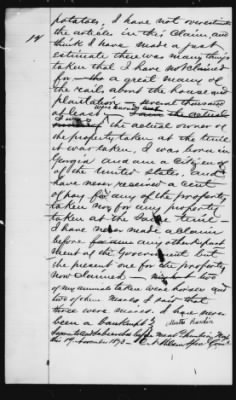 14
potatoes, I have not overestimated
the articles in this claim, and
think I have made a just
estimate there was many things
taken that I have not claimed
for — a great many of
the rails about the house and
plantation — several thousand
at least
the actual owner of
the property taken at the time
it was taken, I was born in
Georgia and am a citizen
of the United States, and
have never received a cent
of pay for any of the property
taken nor for any property
taken at the same time
I have never made a claim
before any other depart
ment of the Government but
the present one for the property
now claimed — two
of my animals taken were horses and
two of them mules, I said that
three were mules. I have never
been a bankrupt
Sworn to and subscribed before me at
the 19 November 1873